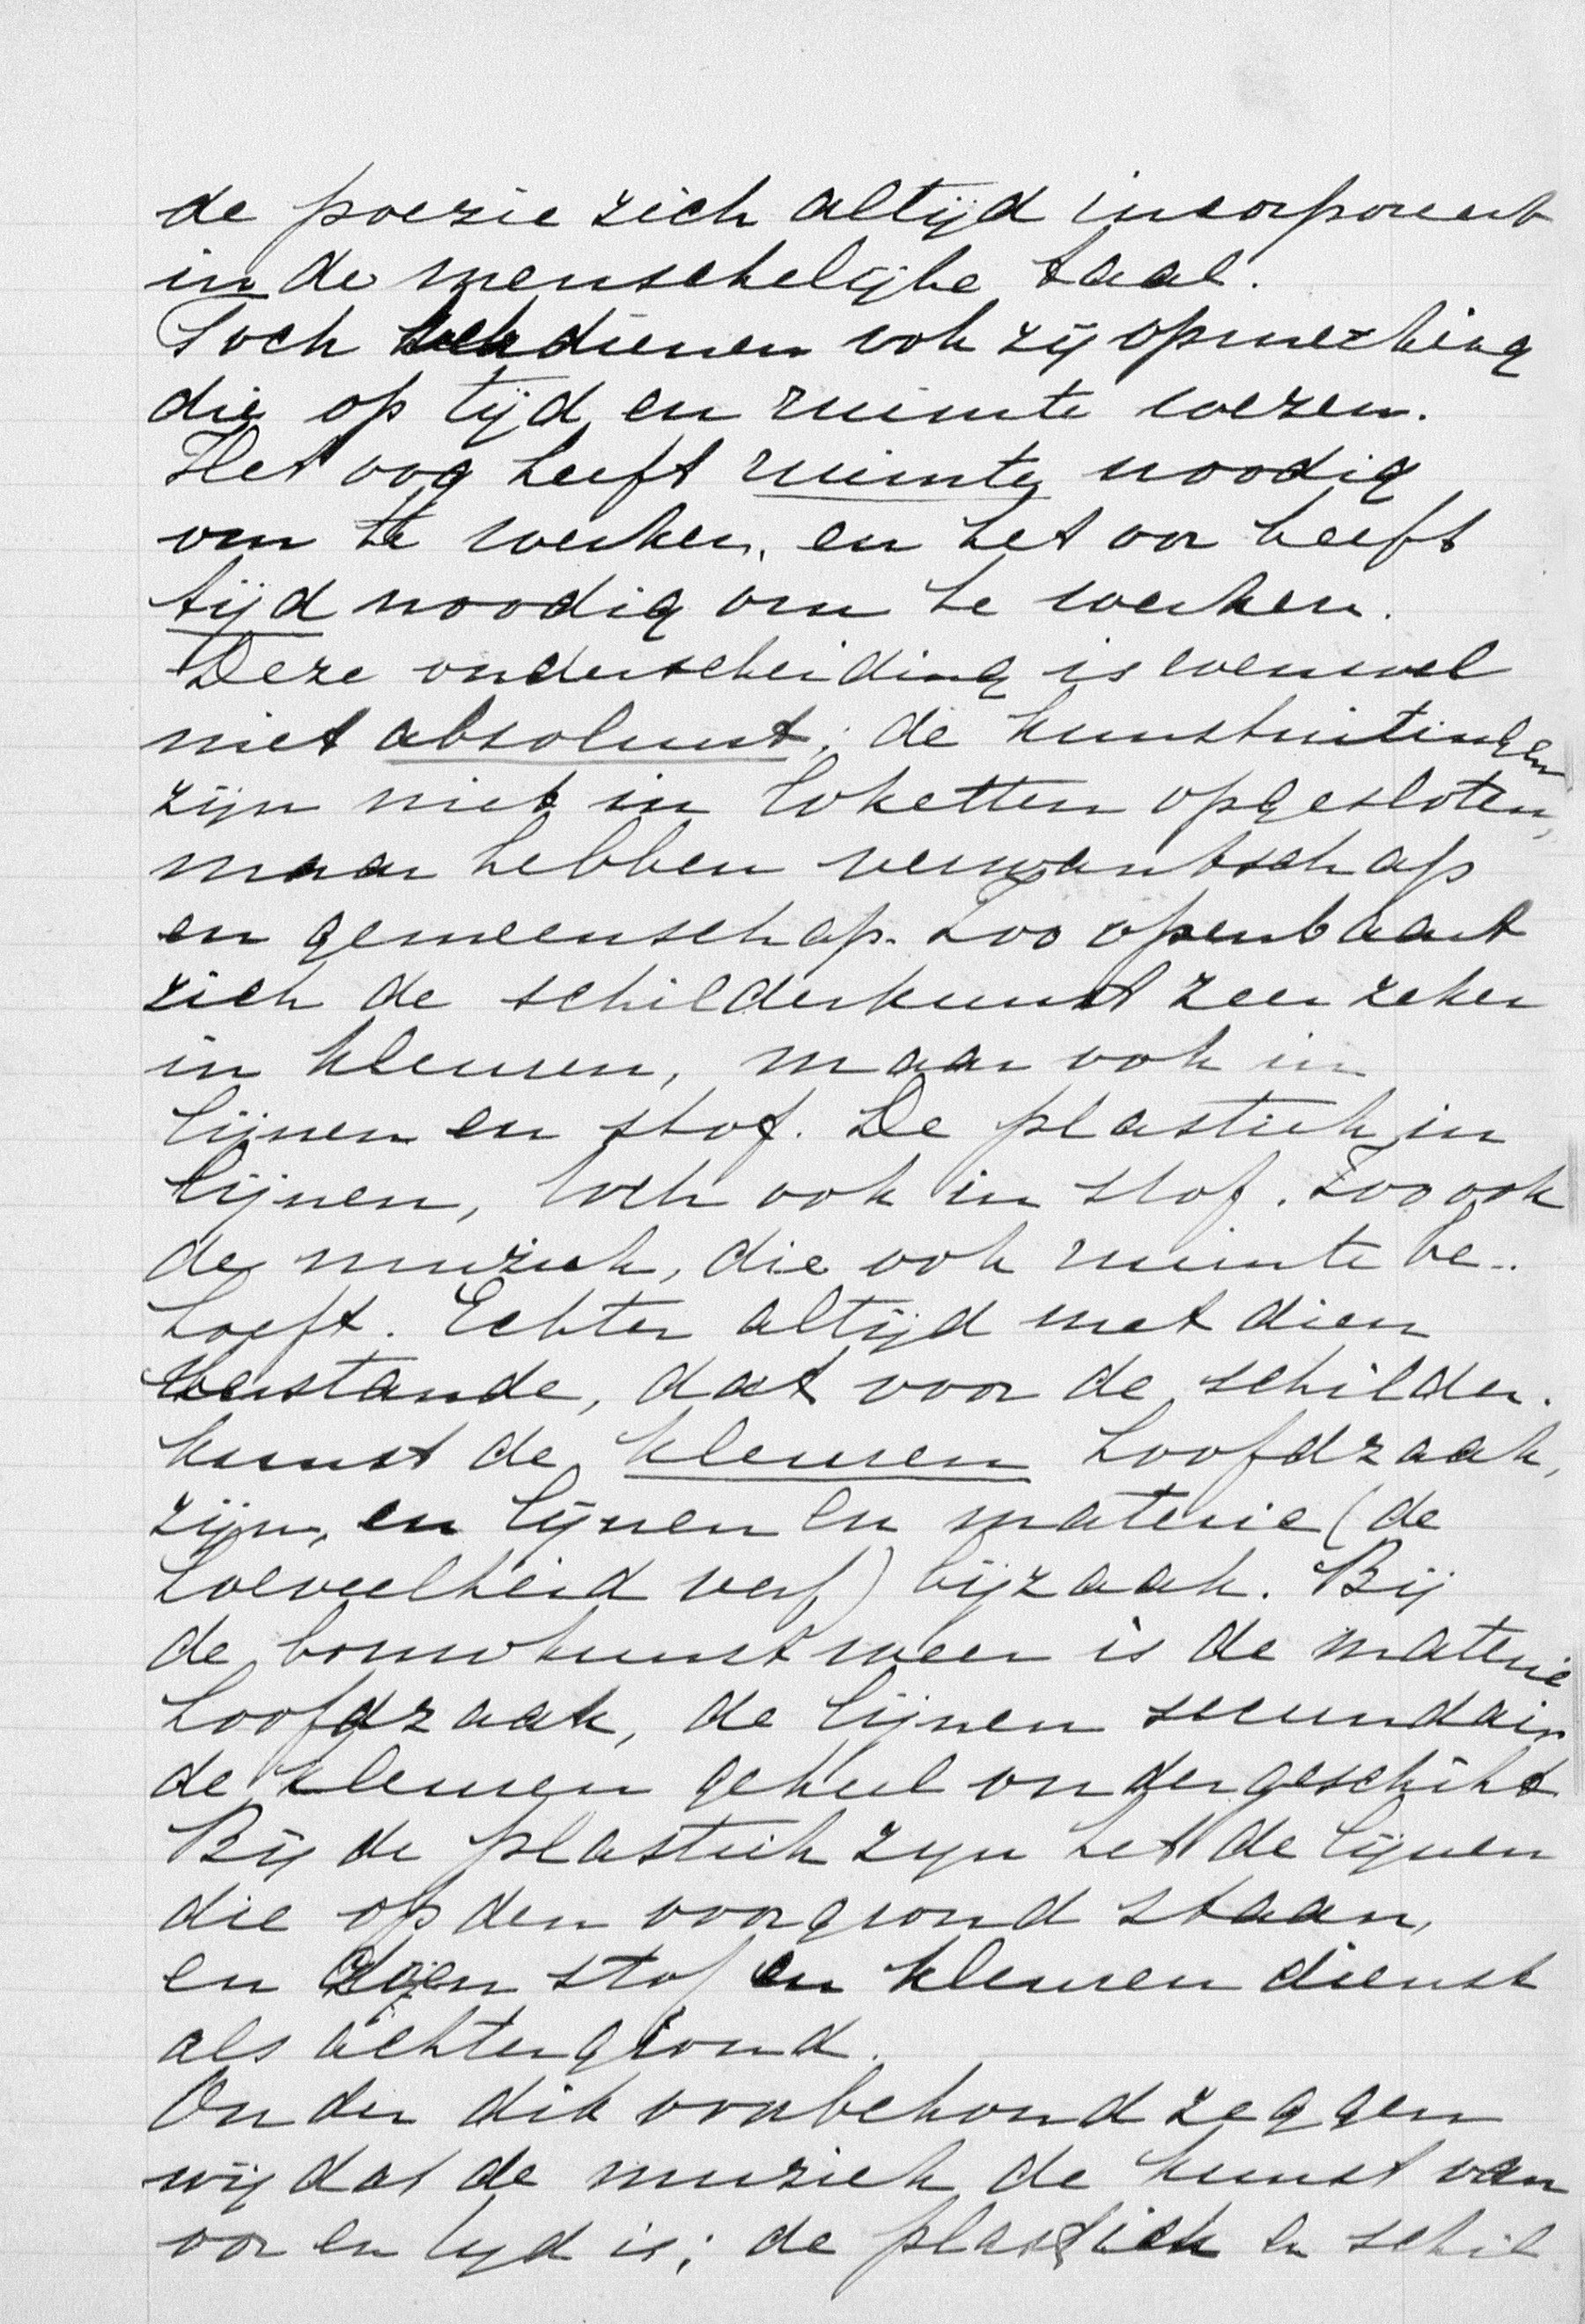 de poezie zich altijd incorporeert
in de menschelijke taal.
Toch verdienen ook zij opmerking
die op tijd en ruimte wezen.
Het oog heeft ruimte noodig
om te werken, en het oor heeft
tijd noodig om te werken.
Deze onderscheiding is evenwel
niet absoluut; de kunstuitingen
zijn niet in loketten opgesloten,
maar hebben verwantschap
en gemeenschap. Zoo openbaart
zich de schilderkunst zeer zeker
in kleuren, maar ook in
lijnen en stof. De plastiek in
lijnen, toch ook in stof. Zoo ook
de muziek, die ook ruimte be-
hoeft. Echter altijd met dien
verstande, dat voor de schilder-
kunst de kleuren hoofdzaak
zijn, en lijnen en materie (de
hoeveelheid verf) bijzaak. Bij
de bouwkunst weer is de materie
hoofdzaak, de lijnen secundair
de kleuren geheel ondergeschikt
Bij de plastiek zijn het de lijnen
die op den voorgrond staan,
en doen stof en kleuren dienst
als achtergrond.
Onder dit voorbehoud zeggen
wij dat de muziek de kunst van
oor en tijd is; de plastiek en schil